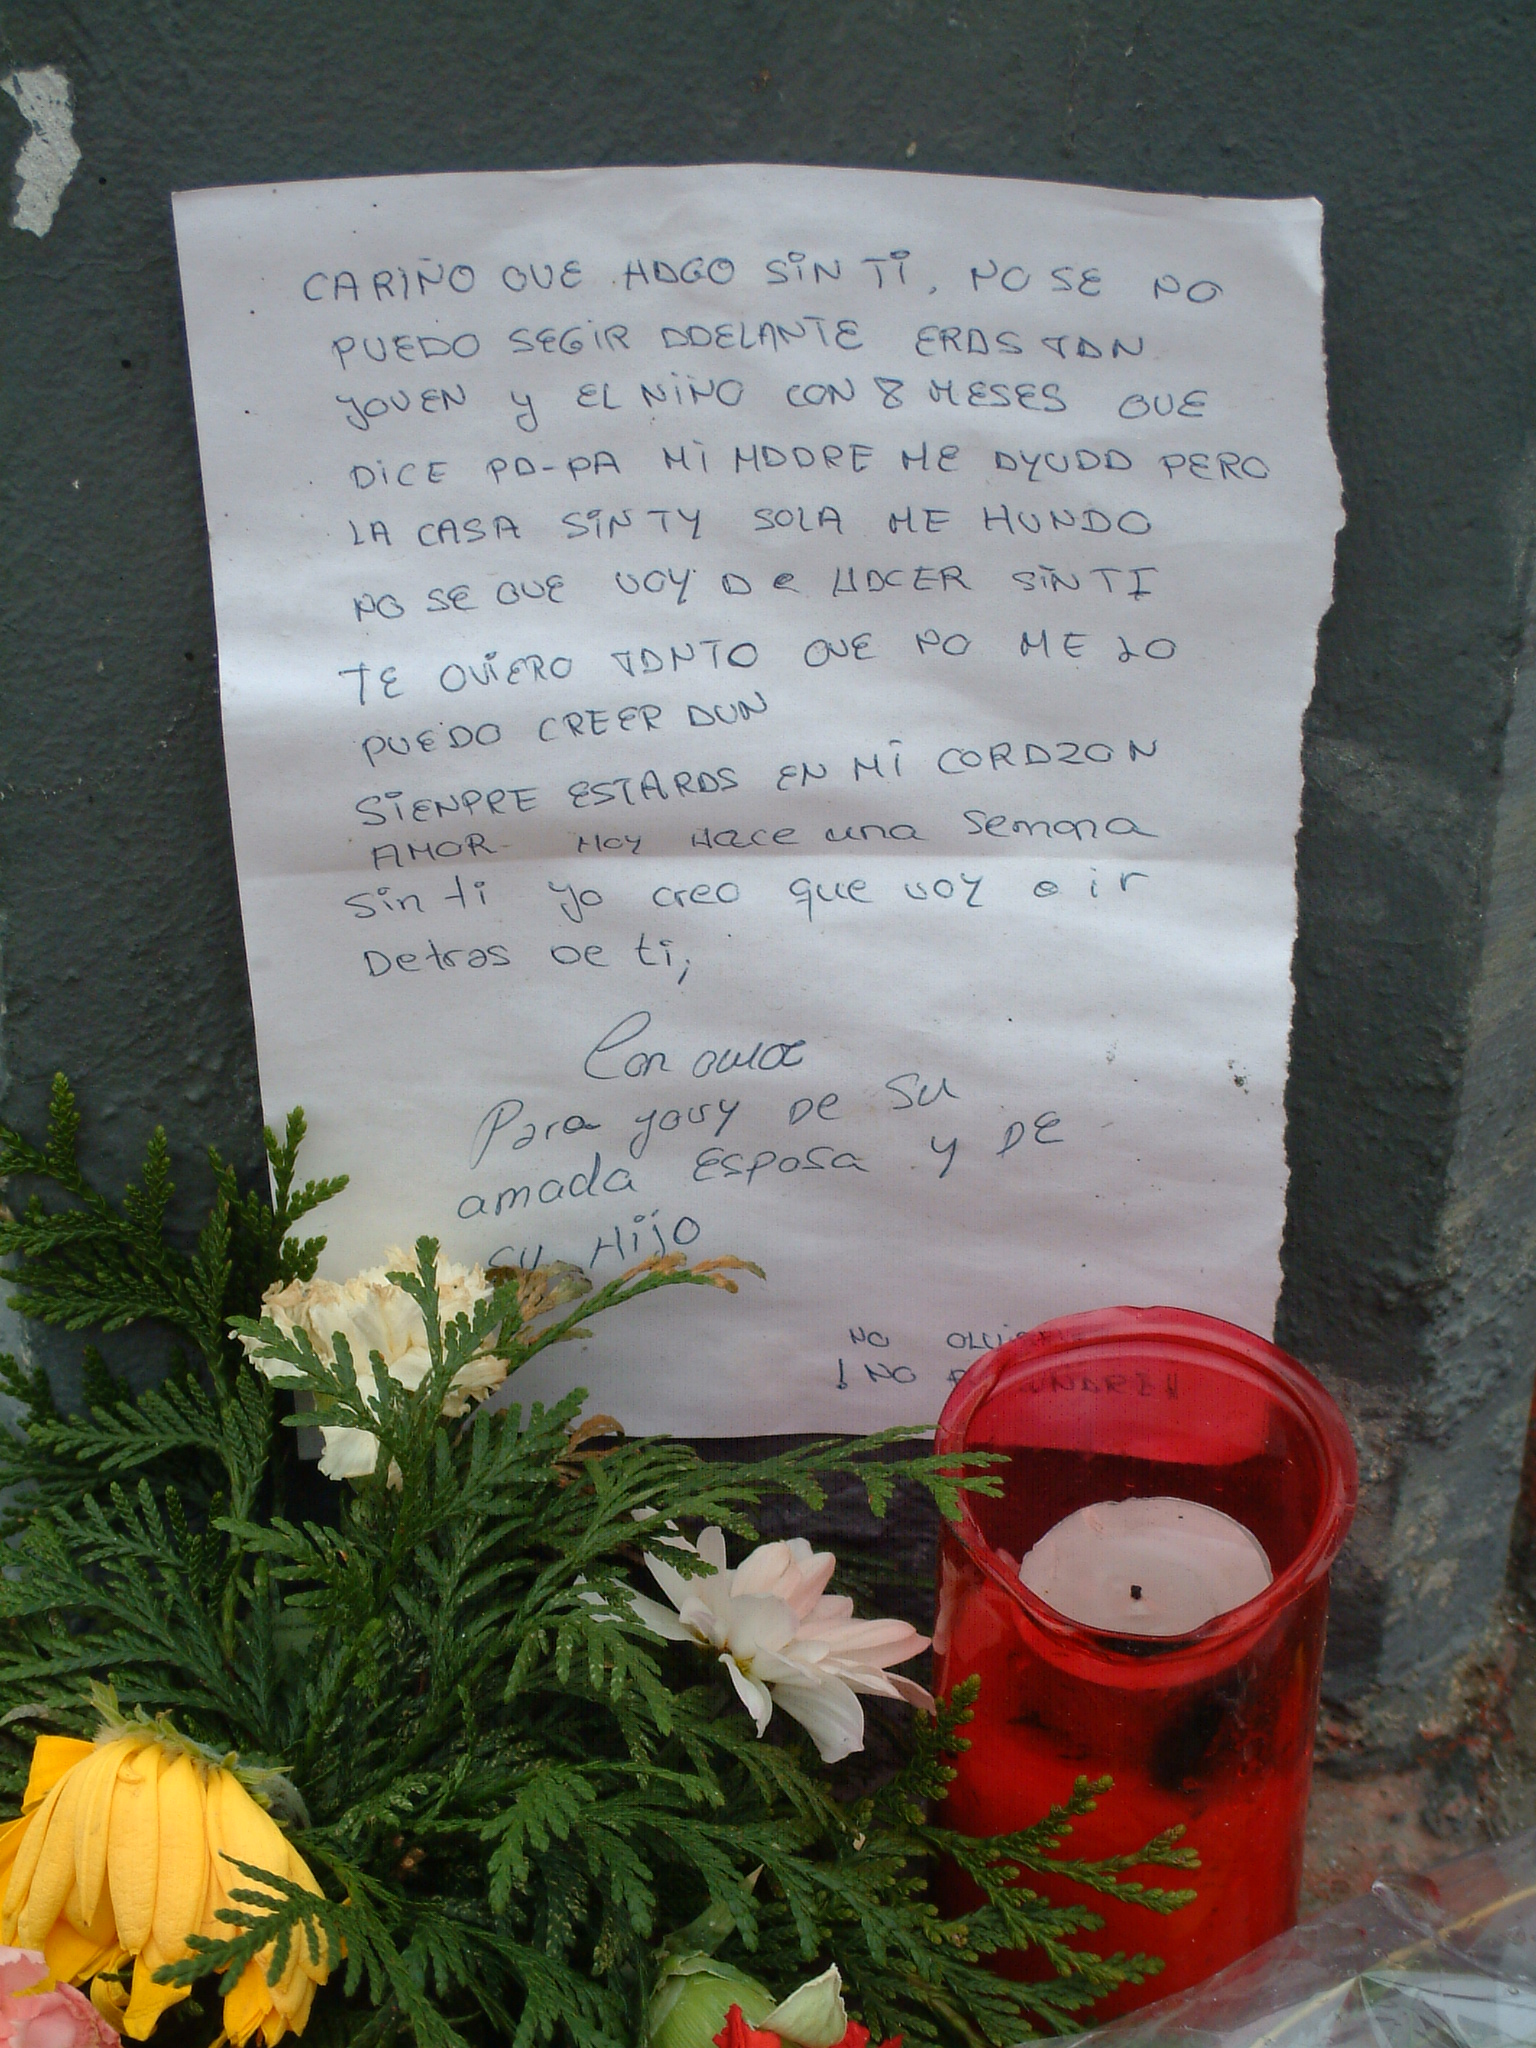 CARIÑO QUE HAGO SIN TI, NO SE NO
PUEDO SEGIR ADELANTE ERAS TAN
JOVEN Y EL NIÑO CON 8 MESES QUE
DICE PA-PA MI MADRE ME AYUDA PERO
LA CASA SIN TY SOLA ME HUNDO
NO SE QUE VOY A HACER SIN TI
TE QUIERO TANTO QUE NO ME LO
PUEDO CREER AUN
SIENPRE ESTARAS EN MI CORAZON
AMOR HOY HACE una semana
Sin ti yo creo que voy a ir
Detras De ti,
Con amor
Para De Su
amada Esposa y DE
SU HIJO
NO
! NO